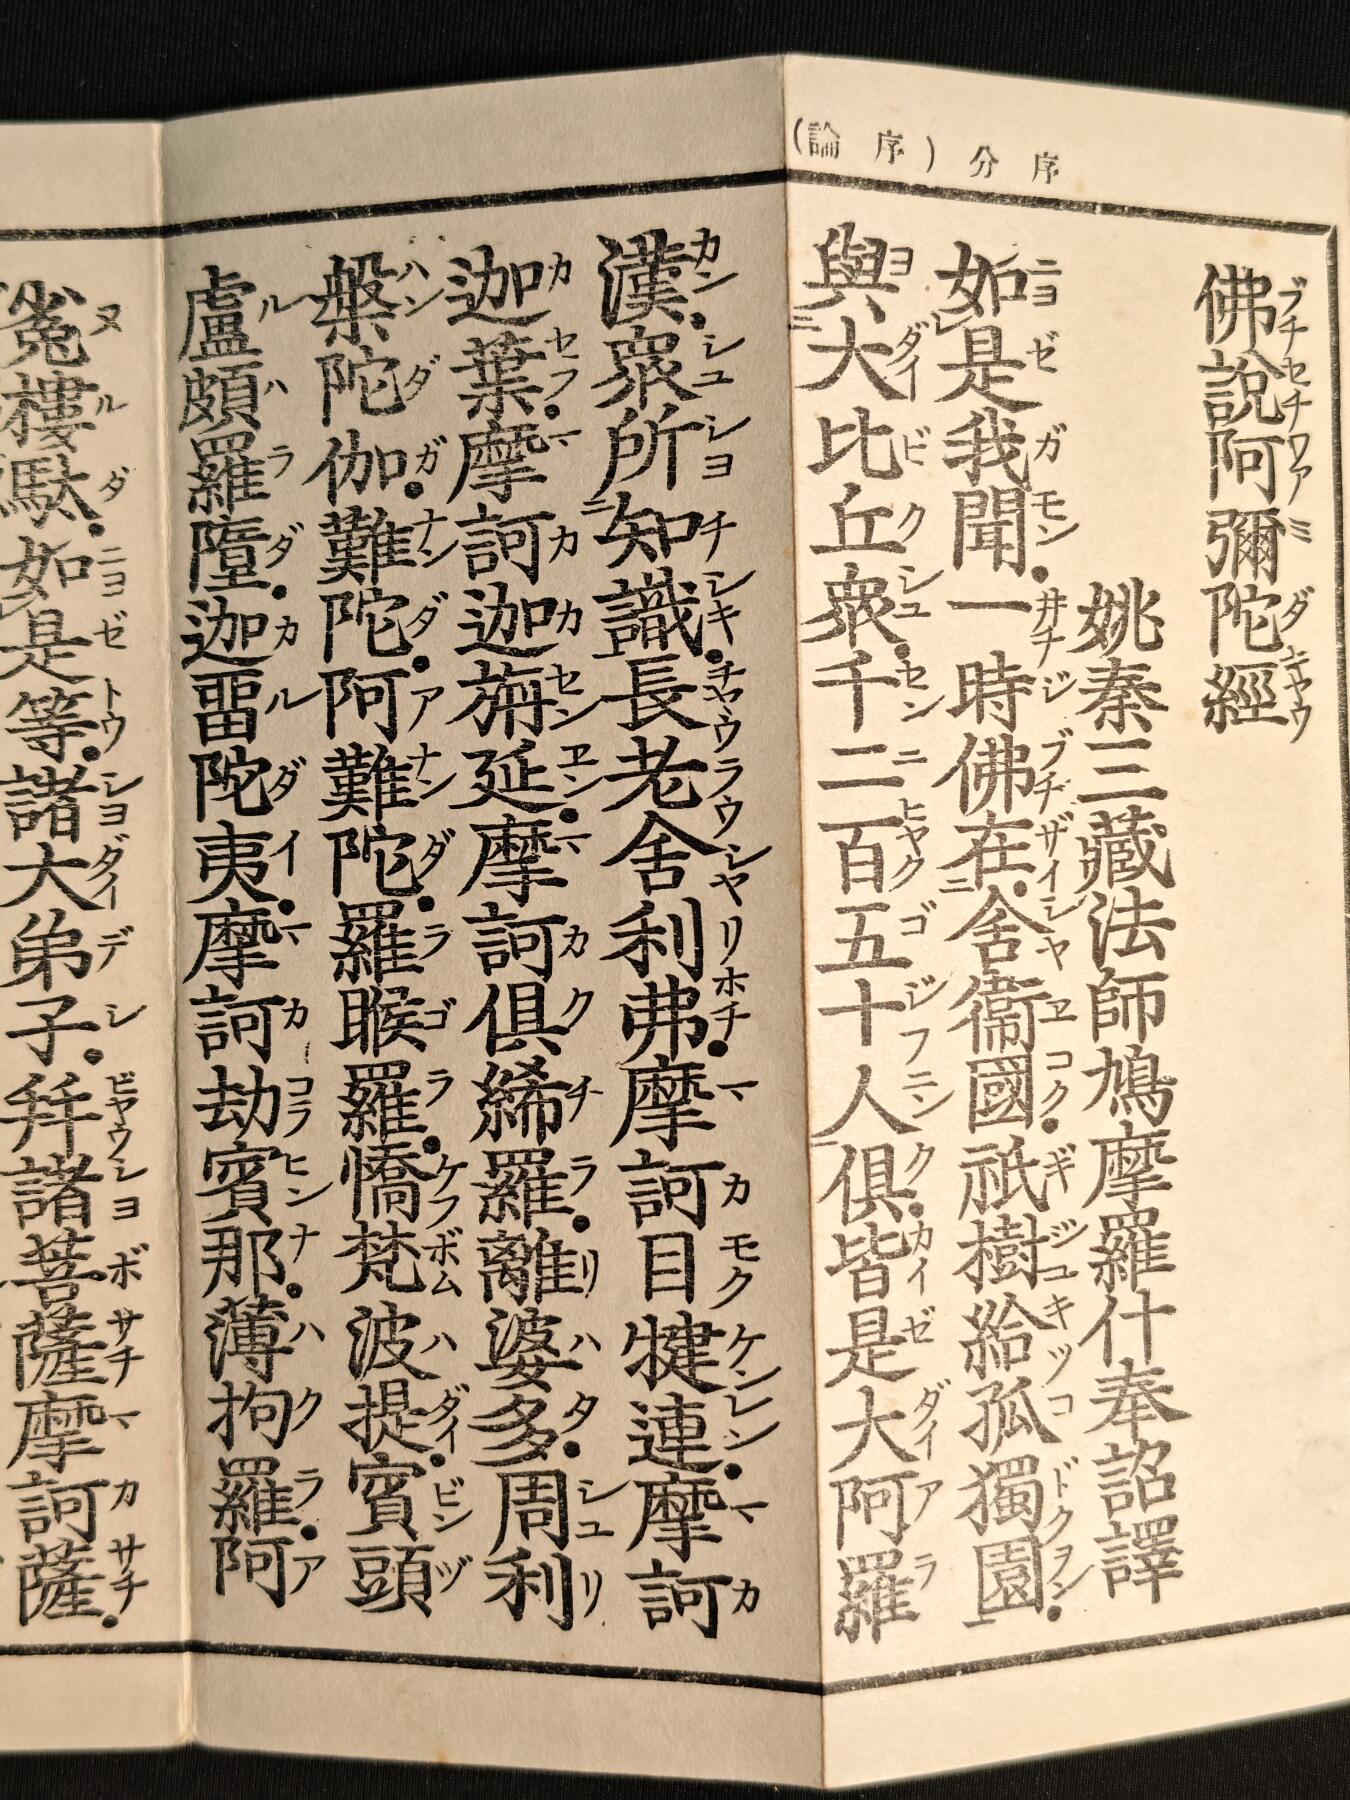 序分（序論）
佛說阿彌陀經
姚秦三藏法師鳩摩羅什奉詔譯
如是我聞。一時佛在舍衞國。祇樹給孤獨園。
與大比丘衆。千二百五十人俱。皆是大阿羅
漢。衆所知識。長老舍利弗。摩訶目犍連。摩訶
迦葉。摩訶迦旃延。摩訶俱絺羅。離婆多。周利
槃陀伽。難陀。阿難陀。羅睺羅。憍梵波提。賓頭
盧頗羅墮。迦畱陀夷。摩訶劫賓那。薄拘羅。阿
㝹樓馱。如是等。諸大弟子。幷諸菩薩摩訶薩。